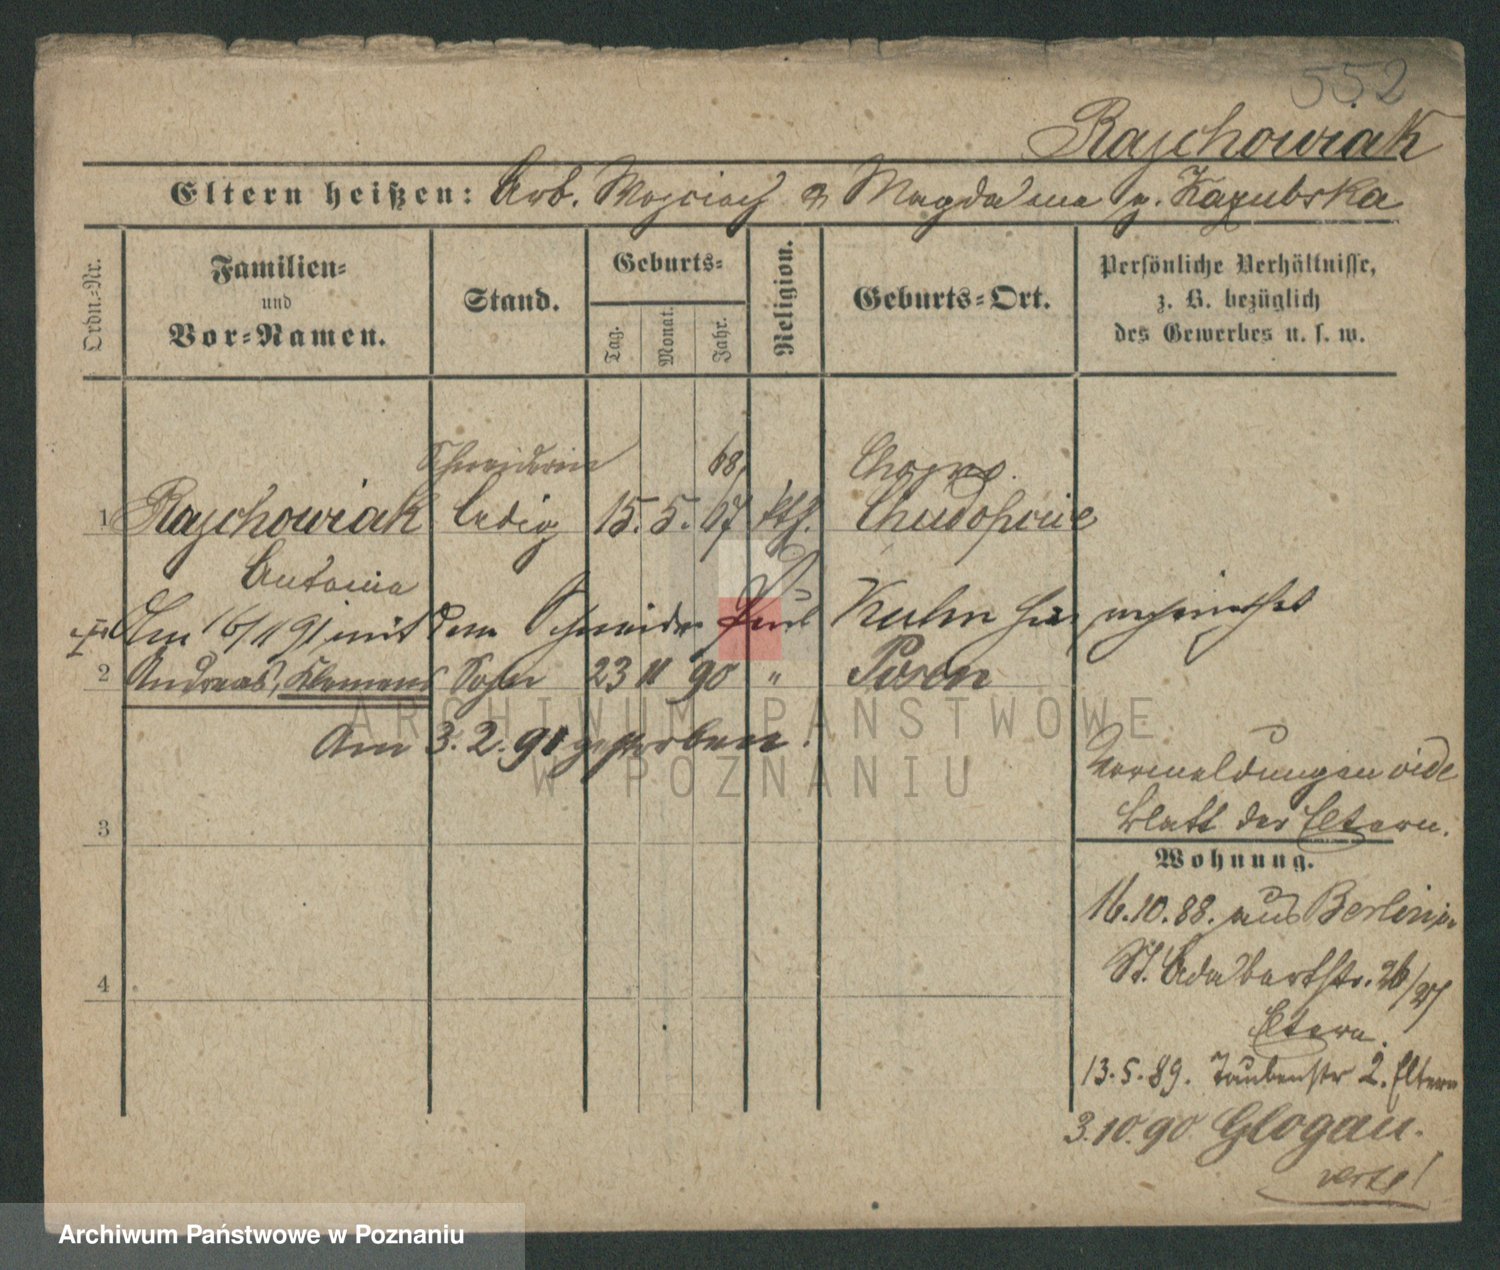 552
Rajchowiak
Eltern heißen: Arb. Wojciech & Magdalena g. Kazubska
Ordn.-Nr.
Familien-
und
Vor-Namen.
Stand.
Geburts-
Tag.
Monat.
Jahr.
Religion.
Geburts-Ort.
Persönliche Verhältnisse,
z. B. bezüglich
des Gewerbes u. s. w.
Schneiderin 68,
1 Rajchowiak ledig 15. 5. 67 kth.
Antonie
Am 16/11 91 mit dem Schneider Paul Kuhn hier verheirathet
2 Andreas, Klemens Sohn 23 11 90 " Posen
Am 3. 2. 91 gestorben.
Vermeldungen vide
Blatt der Eltern.
3
Wohnung.
16.10.88. aus Berlin in
St. Adalbertstr. 26/27
Eltern.
4
13.5.89. Taubenstr 2. Eltern
3.10.90 Glogau.
verte!
ARCHIWUM PAŃSTWOWE
W POZNANIU
Archiwum Państwowe w Poznaniu